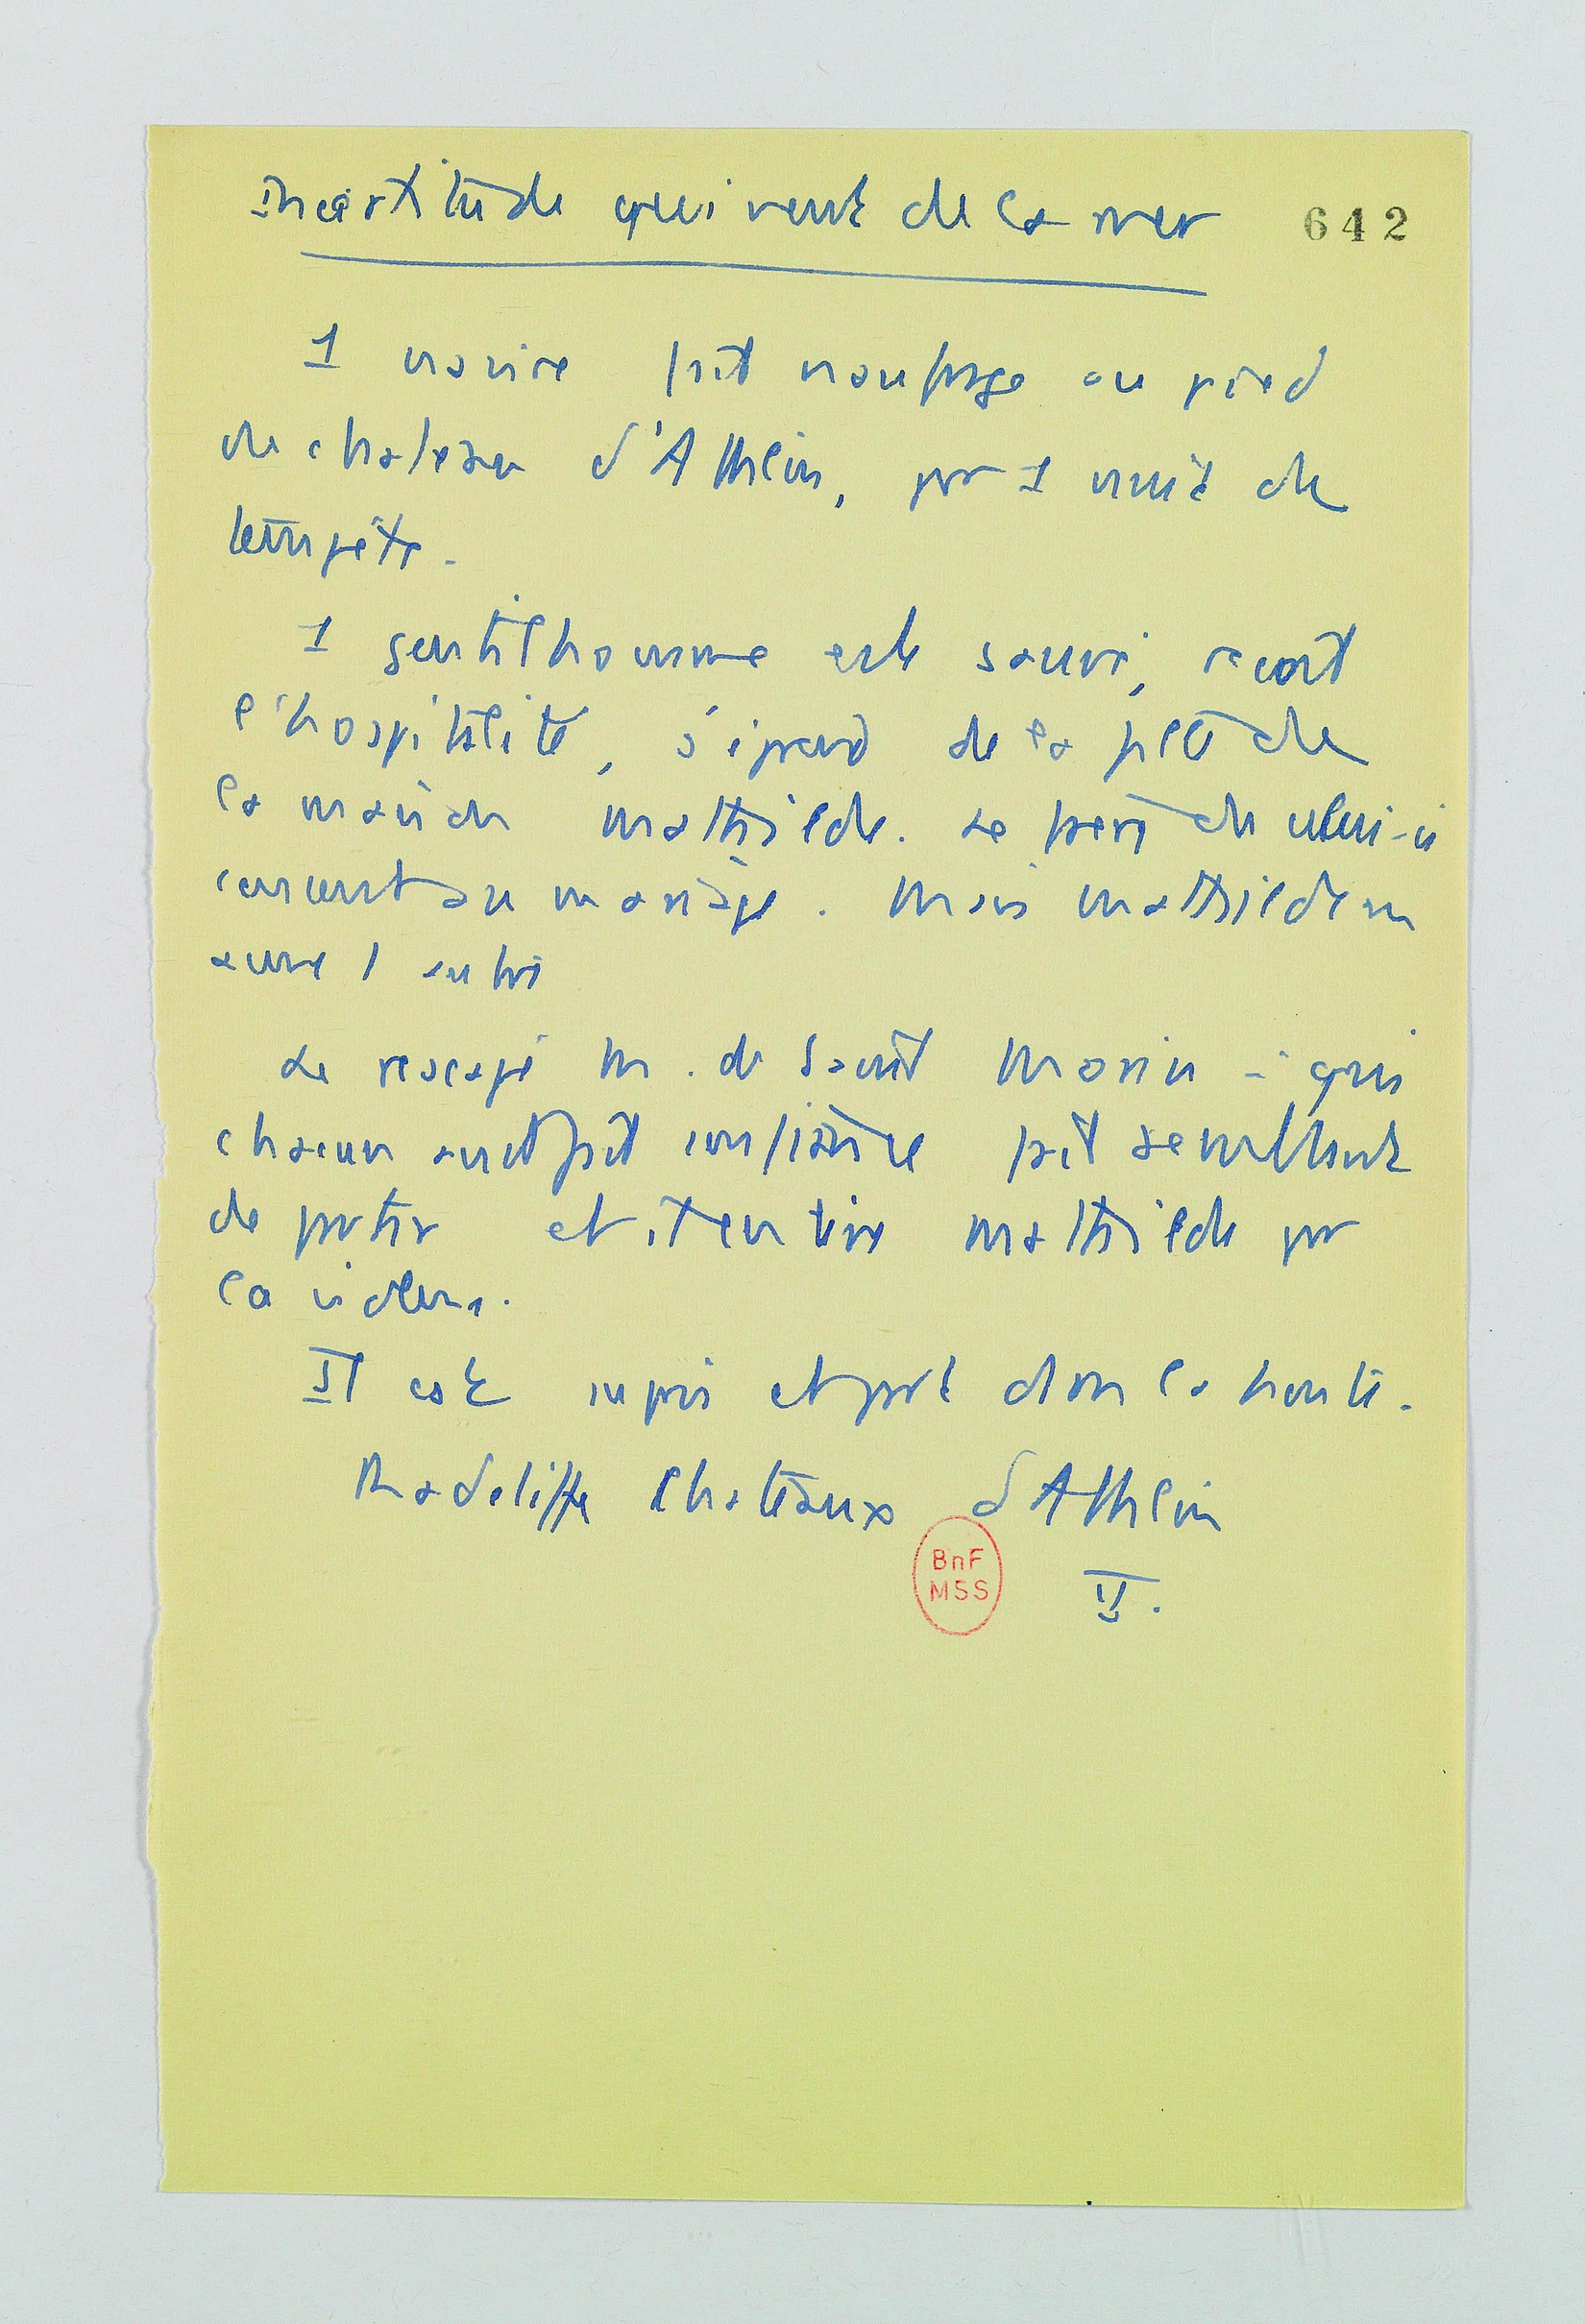 Incertitude qui vient de la mer 642
1 navire fait naufrage au pied
du chateau d'Athlin, par 1 nuit de
tempête.
1 gentilhomme est sauvé, reçoit
l'hospitalité, s'éprend de la fille de
la maison Mathilde. Le père de celui-ci
consent au mariage. Mais Mathilde en
aime 1 autre
Le rescapé M. de Saint Morin à qui
chacun avait fait confiance fait semblant
de partir et il enlève Mathilde par
la violence.
Il est repris et part dans la honte.
Radcliffe Chateaux d'Athlin
BnF
MSS
II.